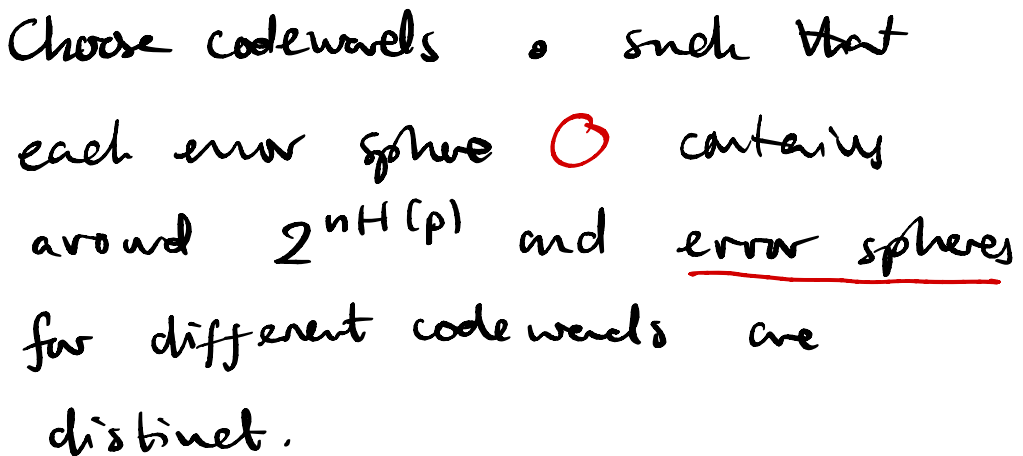 Choose codewords • such that
each error sphere O contains
around 2^{nH(p)} and error spheres
for different codewords are
distinct.